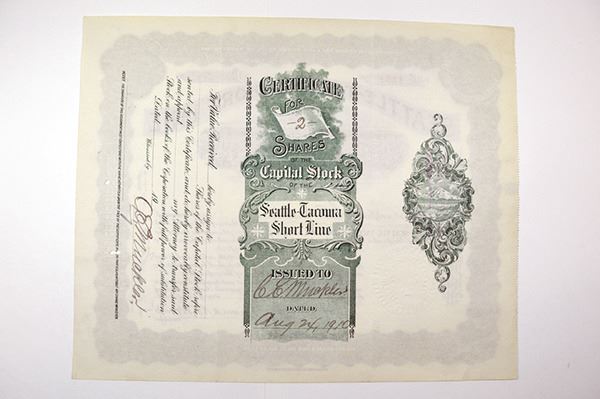 CERTIFICATE
FOR
-2-
SHARES
OF THE
Capital Stock
OF THE
Seattle-Tacoma
Short Line
ISSUED TO
DATED
Aug 24, 1910
For Value Received hereby assign to
Shares of the Capital Stock repre-
sented by this Certificate, and do hereby irrevocably constitute
and appoint
my Attorney to transfer said
Stock on the books of the Corporation with full power of substitution
Dated 19
Witnessed by